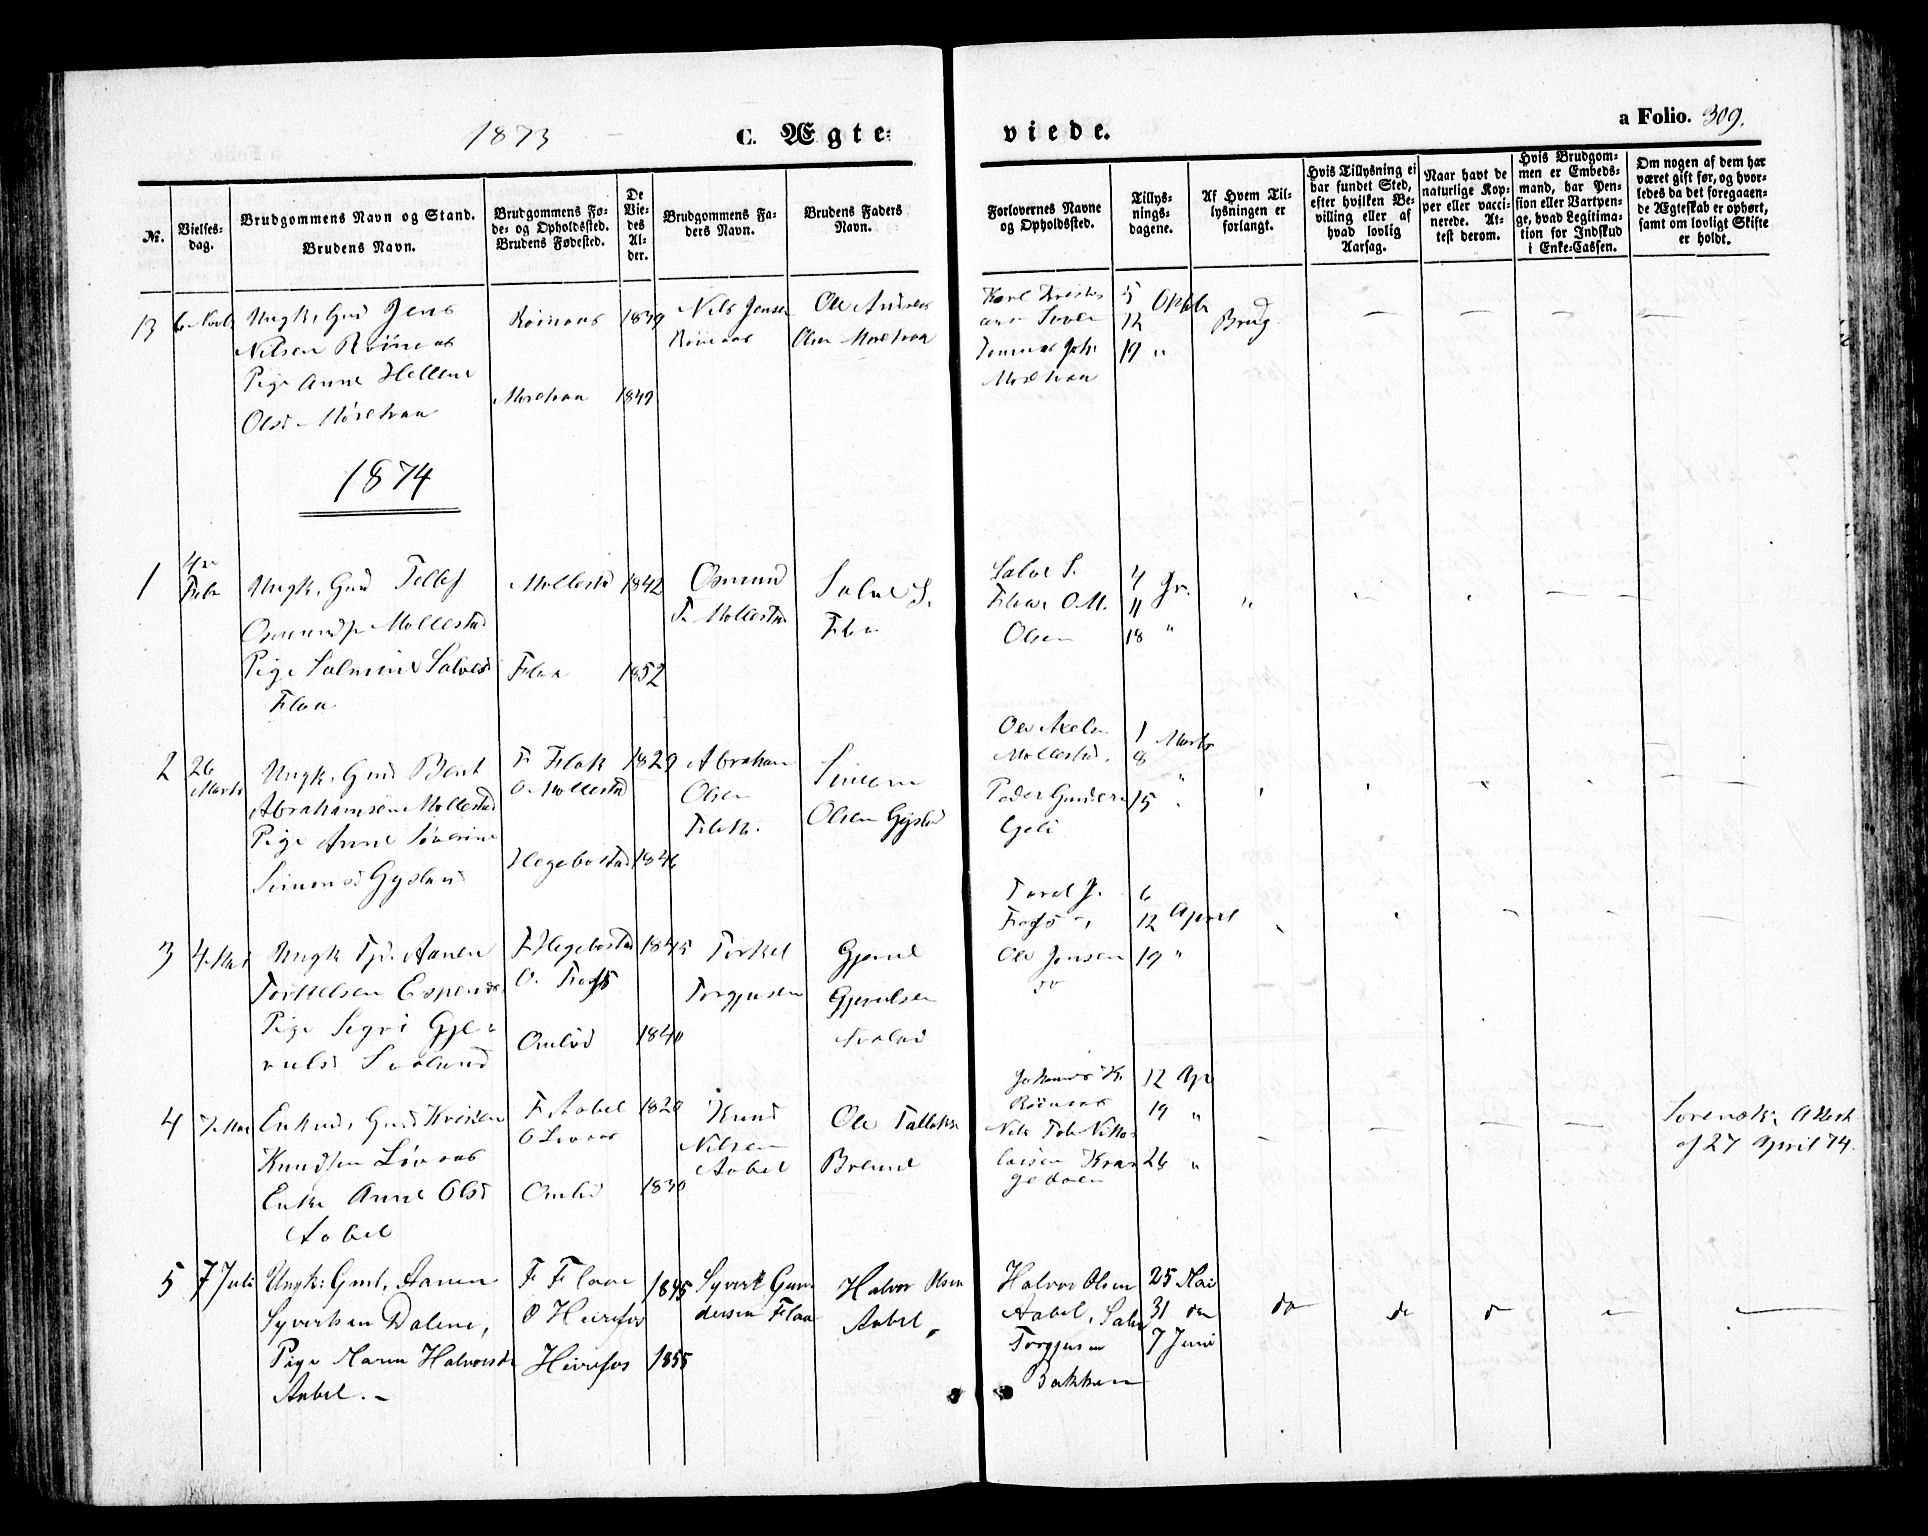 1873
C. Ægte-
viede.
a Folio. 309.
№.
Vielses-
dag.
Brudgommens Navn og Stand.
Brudens Navn.
Brudgommens Fø-
de- og Opholdssted.
Brudens Fødested.
De
Vie-
des
Al-
der.
Brudgommens Fa-
ders Navn.
Brudens Faders
Navn.
Forlovernes Navne
og Opholdssted.
Tillys-
nings-
dagene.
Af Hvem Til-
lysningen er
forlangt.
Hvis Tillysning ei
har fundet Sted,
efter hvilken Be-
villing eller af
hvad lovlig
Aarsag.
Naar havt de
naturlige Kop-
per eller vacci-
nerede. At-
test derom.
Hvis Brudgom-
men er Embeds-
mand, har Pen-
sion eller Vartpen-
ge, hvad Legitima-
tion for Indskud
i Enke-Cassen.
Om nogen af dem har
været gift før, og hvor-
ledes da det foregaaen-
de Ægteskab er ophørt,
samt om lovligt Skifte
er holdt.
13
Ungk. Gmd Jens
Nilsen Røinaas
Pige Anne Hellene
Olsd.
Røinaas
1849
1849
Nils Jensen
Røinaas
Ole Andreas
Olsen
5 Octbr
12
19 "
Brug.
1874
1
4
Febr
Ungk. Gmd Tellef
Osmundsen Mollestad
Pige Salmine Salvesd
Flaa
Mollestad
Flaa
1842
1852
Osmund
T. Mollestad
Salve S.
Flaa
Salve S.
Flaa O.M.
Olsen
4 Jr.
11
18 "
2
26
Marts
Ungk. Gmd Bent
Abrahamsen Mollestad
Pige Anne Severine
Simonsd Gysland
F. Flak
O. Mollestad
Hegebostad
1829
1846
Abraham
Olsen
Flak.
Simon
Olsen Gysland
Ole Axelsen
Mollestad.
Peder Gunders
1 Marts
8
15 "
3
4 Mai
Ungk Tjd. Aanen
Torkelsen Espens
Pige Segri Gje-
rulsd
F. Hegebostad
O. Fros
Omlid
1845
1840
Torkel
Torgjusen
Gjerul
Gjerulsen
Torel J.
Ole Jensen
6
12 April
19 "
4
7 Mai
Enkmd, Gmd Kristen
Knudsen Løvaas
Enke Anne Olsd
Aabel
F. Aabel
O Lovaas
Omlid
1820
1830
Knud
Nilsen
Aabel
Ole Tallaks
Breime
Johannes K.
Røinaas
Nils Tob. Nikko-
laisen Kraa-
gedalen
12 Apr
19 "
26 "
Sorensk. Attest
af 27 April 74.
5
7 Juli
Ungk. Gmd, Aanen
Syvertsen Dalene,
Pige Maren Halvorsdr
Aabel.-
F Flaae
O Heirefos
Heirefos
1845
1855
Syvert Gun-
dersen Flaa
Halvor Olsen
Aabel,
Halvor Olsen
Aabel, Salve
Torgjusen
Bakken
25 Mai
31 do
7 Juni
do
do
do